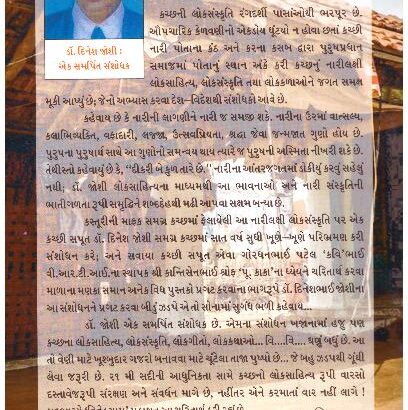 ડૉ. દિનેશ જોશી :
એક સમર્પિત સંશોધક
કચ્છની લોકસંસ્કૃતિ રંગદર્શી પાસાઓથી ભરપૂર છે.
ઔપચારિક કેળવણીનો એકડોય ઘૂંટ્યો ન હોવા છતાં કચ્છી
નારી પોતાના કંઠ અને કરના કસબ દ્વારા પુરુષપ્રધાન
સમાજમાં પોતાનું સ્થાન અંકે કરી કચ્છનું નારીલક્ષી
લોકસાહિત્ય, લોકસંસ્કૃતિ તથા લોકકળાઓને જગત સમક્ષ
મૂકી આપ્યું છે; જેનો અભ્યાસ કરવા દેશ-વિદેશથી સંશોધકો આવે છે.
કહેવાય છે કે નારીની લાગણીને નારી જ સમજી શકે. નારીના હૈરમાં વાત્સલ્ય,
કલાભિવ્યક્તિ, વફાદારી, લજ્જા, ઉત્સવપ્રિયતા, શ્રદ્ધા જેવા જન્મજાત ગુણો હોય છે.
પુરુષના પુરુષાર્થ સાથે આ ગુણોનો સમન્વય થાય ત્યારે જ પુરુષની અસ્મિતા નીખરી શકે છે.
તેથીસ્તો કહેવાયું છે કે, “દીકરી બે કુળ તારે છે.” નારીના આંતરજગતમાં ડોકીયું કરવું સહેલું
નથી; ડૉ. જોશી લોકસાહિત્યના માધ્યમથી આ ભાવનાઓ અને નારી સંસ્કૃતિની
ભાતીગળતા રૂપી સમૃદ્ધિને શબ્દદેહથી મઢી આપવા સક્ષમ બન્યા છે.
કસ્તૂરીની માફક સમગ્ર કચ્છમાં ફેલાયેલી આ નારીલક્ષી લોકસંસ્કૃતિ પર એક
કચ્છી સપૂત ડૉ. દિનેશ જોશી સમગ્ર કચ્છમાં સાત વર્ષ સુધી ખૂણે-ખૂણે પરિભ્રમણ કરી
સંશોધન કરે; અને સવાયા કચ્છી સપૂત એવા ગોરધનભાઈ પટેલ ‘કવિ’ભાઈ
વી.આર.ટી.આઈ.ના સ્થાપક શ્રી કાન્તિસેનભાઈ શ્રોફ ‘પૂ. કાકા’ના ધ્યેયને ચરિતાર્થ કરવા
માળાના મણકા સમાન અનેકવિધ પુસ્તકો પ્રગટ કરવાના ભાગરૂપે ડૉ. દિનેશભાઈ જોશીના
આ સંશોધનને પ્રગટ કરવા બીડું ઝડપે એ તો સોનામાં સુગંધ ભળી કહેવાય...
ડૉ. જોશી એક સમર્પિત સંશોધક છે. એમના સંશોધન ખજાનામાં હજુ પણ
કચ્છના લોકસાહિત્ય, લોકસંસ્કૃતિ, લોકગીતો, લોકકથાઓ... વિ... વિ.... ઘણું બધું છે. આ
તો વેણી માટે ખૂશ્બુદાર ગજરો બનાવવા માટે ચૂંટેલા તાજા પુષ્પો છે... જે બહુ ઝડપથી ગૂંથી
લેવા જરૂરી છે. ૨૧ મી સદીની આધુનિકતા સામે કચ્છના લોકસાહિત્ય રૂપી વારસો
દસ્તાવેજરૂપી સંરક્ષણ અને સંવર્ધન માગે છે, નહીંતર એને કરમાતાં વાર નહીં લાગે !